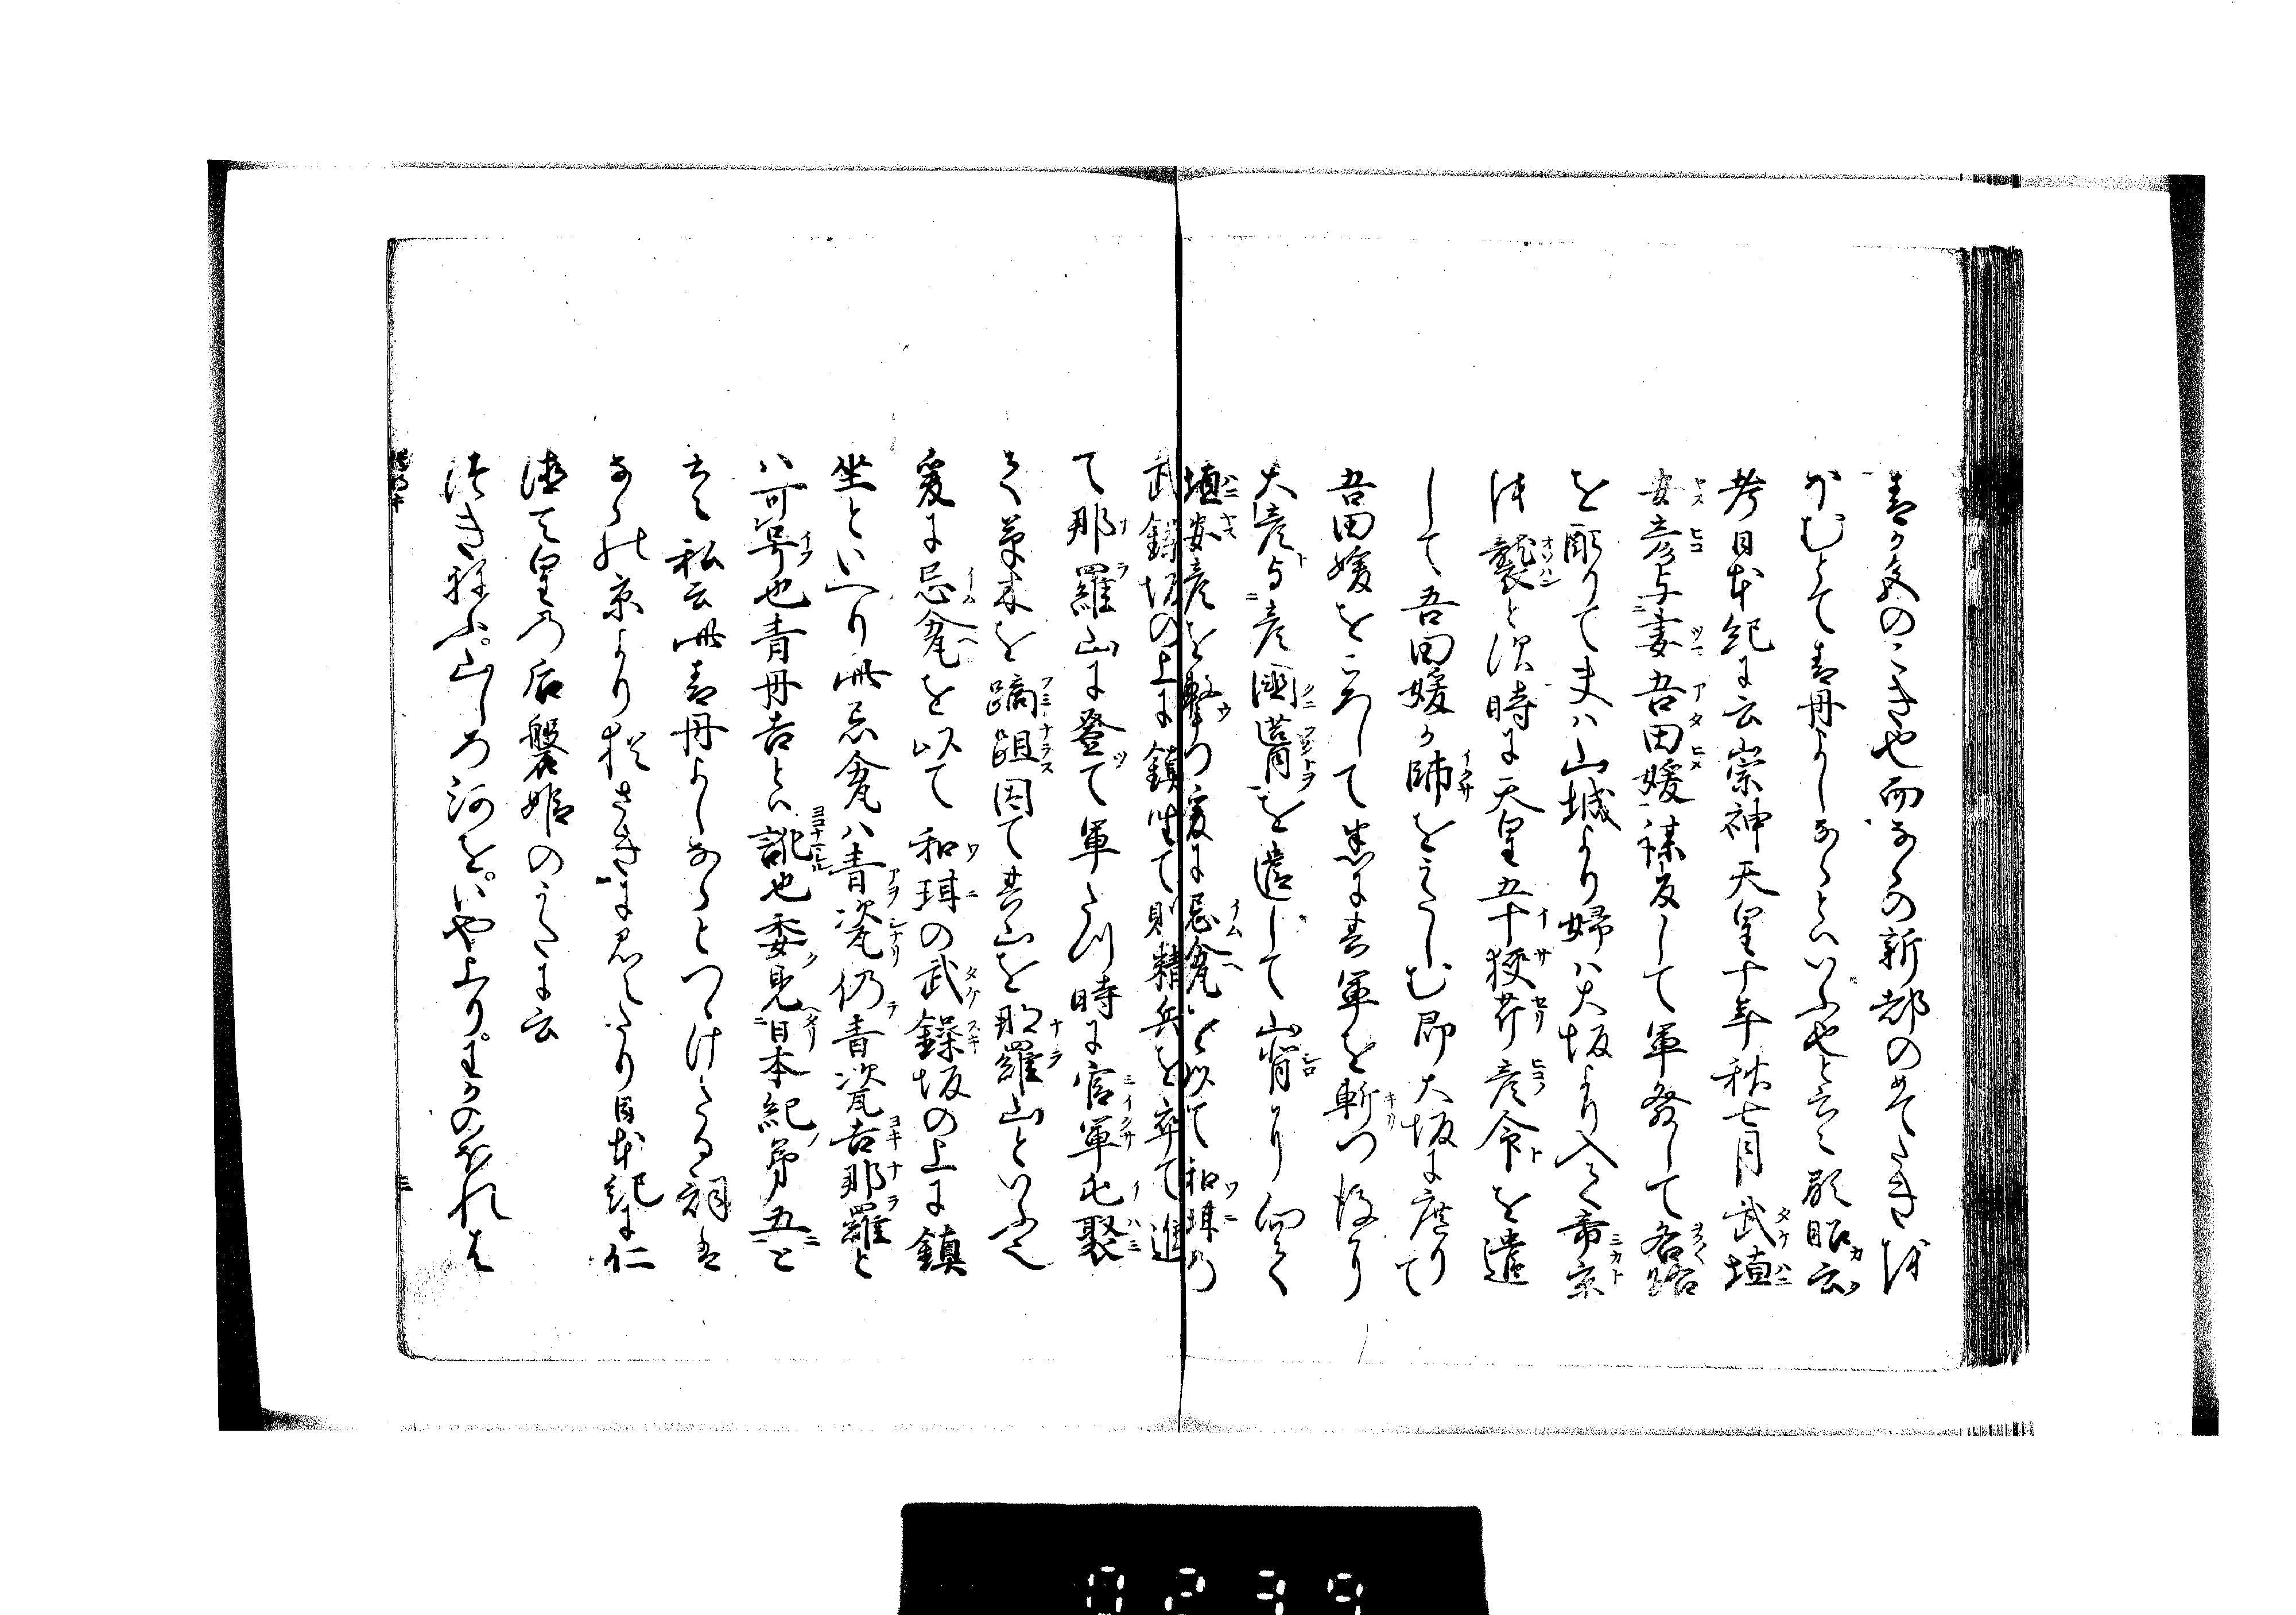 青き色のこき也而ならの新都のめてたきを
ほむとて青丹よしならといふ也と云々顕昭カ云
考日本紀に云崇神天皇十年秋七月武埴
安彦与妻吾田媛謀反して軍発して各路
を配りて夫ハ山城より婦ハ大坂より入て帝京
を襲と次時に天皇五十狭芹彦命を遣
して吾田媛か師をうたしむ即大坂に度りて
吾田媛を亡して悉に其軍を斬つ後り
大彦与彦国葺を遣して山背り向て
埴安彦を撃つ爰に忌瓮を以て和珥の
武鐰坂の上に鎮坐て則精兵を卒て進
て那羅山に登て軍たつ時に官軍屯聚
て草木を蹢跙因て其山を那羅山といふ
爰に忌瓮を以て和珥の武鐰坂の上に鎮
坐といへり此忌瓮ハ青瓷仍青瓷吉那羅と
ハ可号也青丹吉といハ訛也委見日本紀第五と
云々私云此青丹よしならとつゝけたる詞は
ならの京より猶さきに見えたり日本紀に仁
徳天皇乃后磐姫のうたに云
つきねふ山しろ河をいや上りわかのほれは